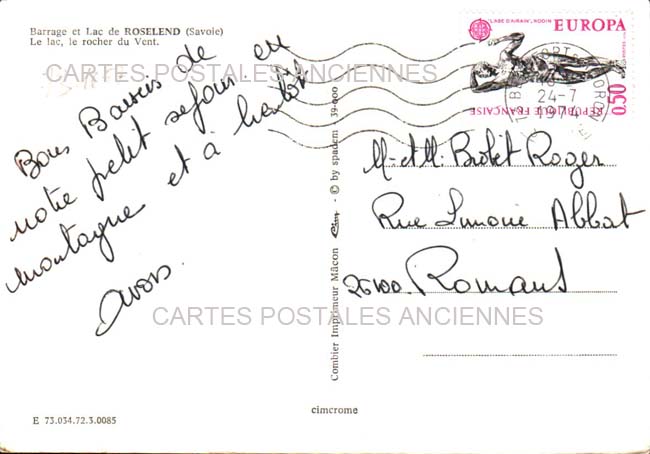 Barrage et Lac de ROSELEND (Savoie)
Le lac, le rocher du Vent.
Bons Baisers de
notre petit séjour en
montagne et à bientôt
CARTES POSTALES ANCIENNES
CARTES POSTALES ANCIENNES
Combier Imprimeur Mâcon Cim - © by spadem - 39-000
L'AGE D'AIRAIN, RODIN
EUROPA
0,50
REPUBLIQUE FRANÇAISE
24-7
1974
M. et M. Brolet Roger
Rue Abbat
26100. Romans
cimcrome
E 73.034.72.3.0085